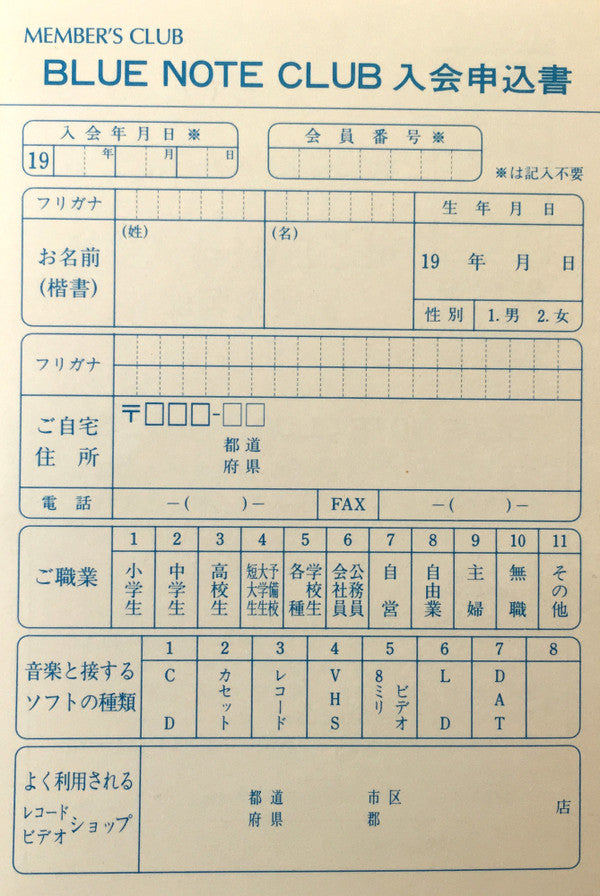 MEMBER'S CLUB
BLUE NOTE CLUB 入会申込書
入会年月日※
19 年 月 日
会員番号※
※は記入不要
フリガナ
生年月日
お名前
(楷書)
(姓)
(名)
19 年 月 日
性別 1.男 2.女
フリガナ
ご自宅
住所
〒□□□-□□
都道
府県
電話 —( )— FAX —( )—
ご職業
1 小学生
2 中学生
3 高校生
4 短大生 大学生 予備校生
5 各種学校生
6 会社員 公務員
7 自営
8 自由業
9 主婦
10 無職
11 その他
音楽と接する
ソフトの種類
1 CD
2 カセット
3 レコード
4 VHS
5 8ミリビデオ
6 LD
7 DAT
8
よく利用される
レコード
ビデオ ショップ
都道
府県
市区
郡
店